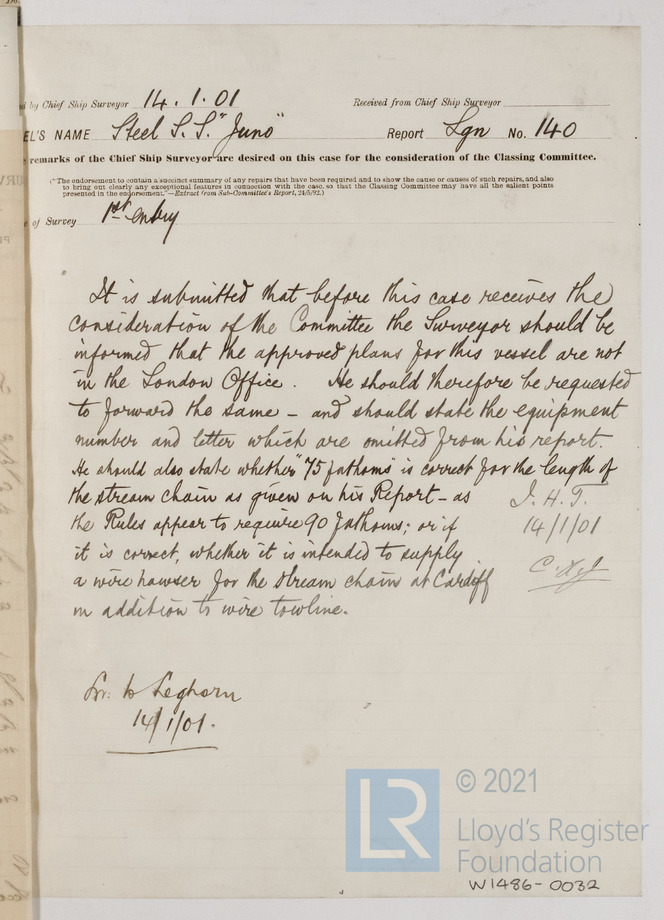 d by Chief Ship Surveyor 14.1.01 Received from Chief Ship Surveyor
EL'S NAME Steel S.S. "Juno" Report Lgn No. 140
remarks of the Chief Ship Surveyor are desired on this case for the consideration of the Classing Committee.
(*The endorsement to contain a succinct summary of any repairs that have been required and to show the cause or causes of such repairs, and also
to bring out clearly any exceptional features in connection with the case, so that the Classing Committee may have all the salient points
presented in the endorsement."—Extract from Sub-Committee's Report, 24/5/92.)
e of Survey 1st entry
It is submitted that before this case receives the
consideration of the Committee the Surveyor should be
informed that the approved plans for this vessel are not
in the London Office. He should therefore be requested
to forward the same – and should state the equipment
number and letter which are omitted from his report.
He should also state whether "75 fathoms" is correct for the length of
the stream chain as given on his Report – as
the Rules appear to require 90 fathoms; or if
it is correct, whether it is intended to supply
a wire hawser for the stream chain at Cardiff
in addition to wire towline.
J. H. T.
14/1/01
Lr. to Leghorn
14/1/01.
LR
© 2021
Lloyd's Register
Foundation
W1486-0032